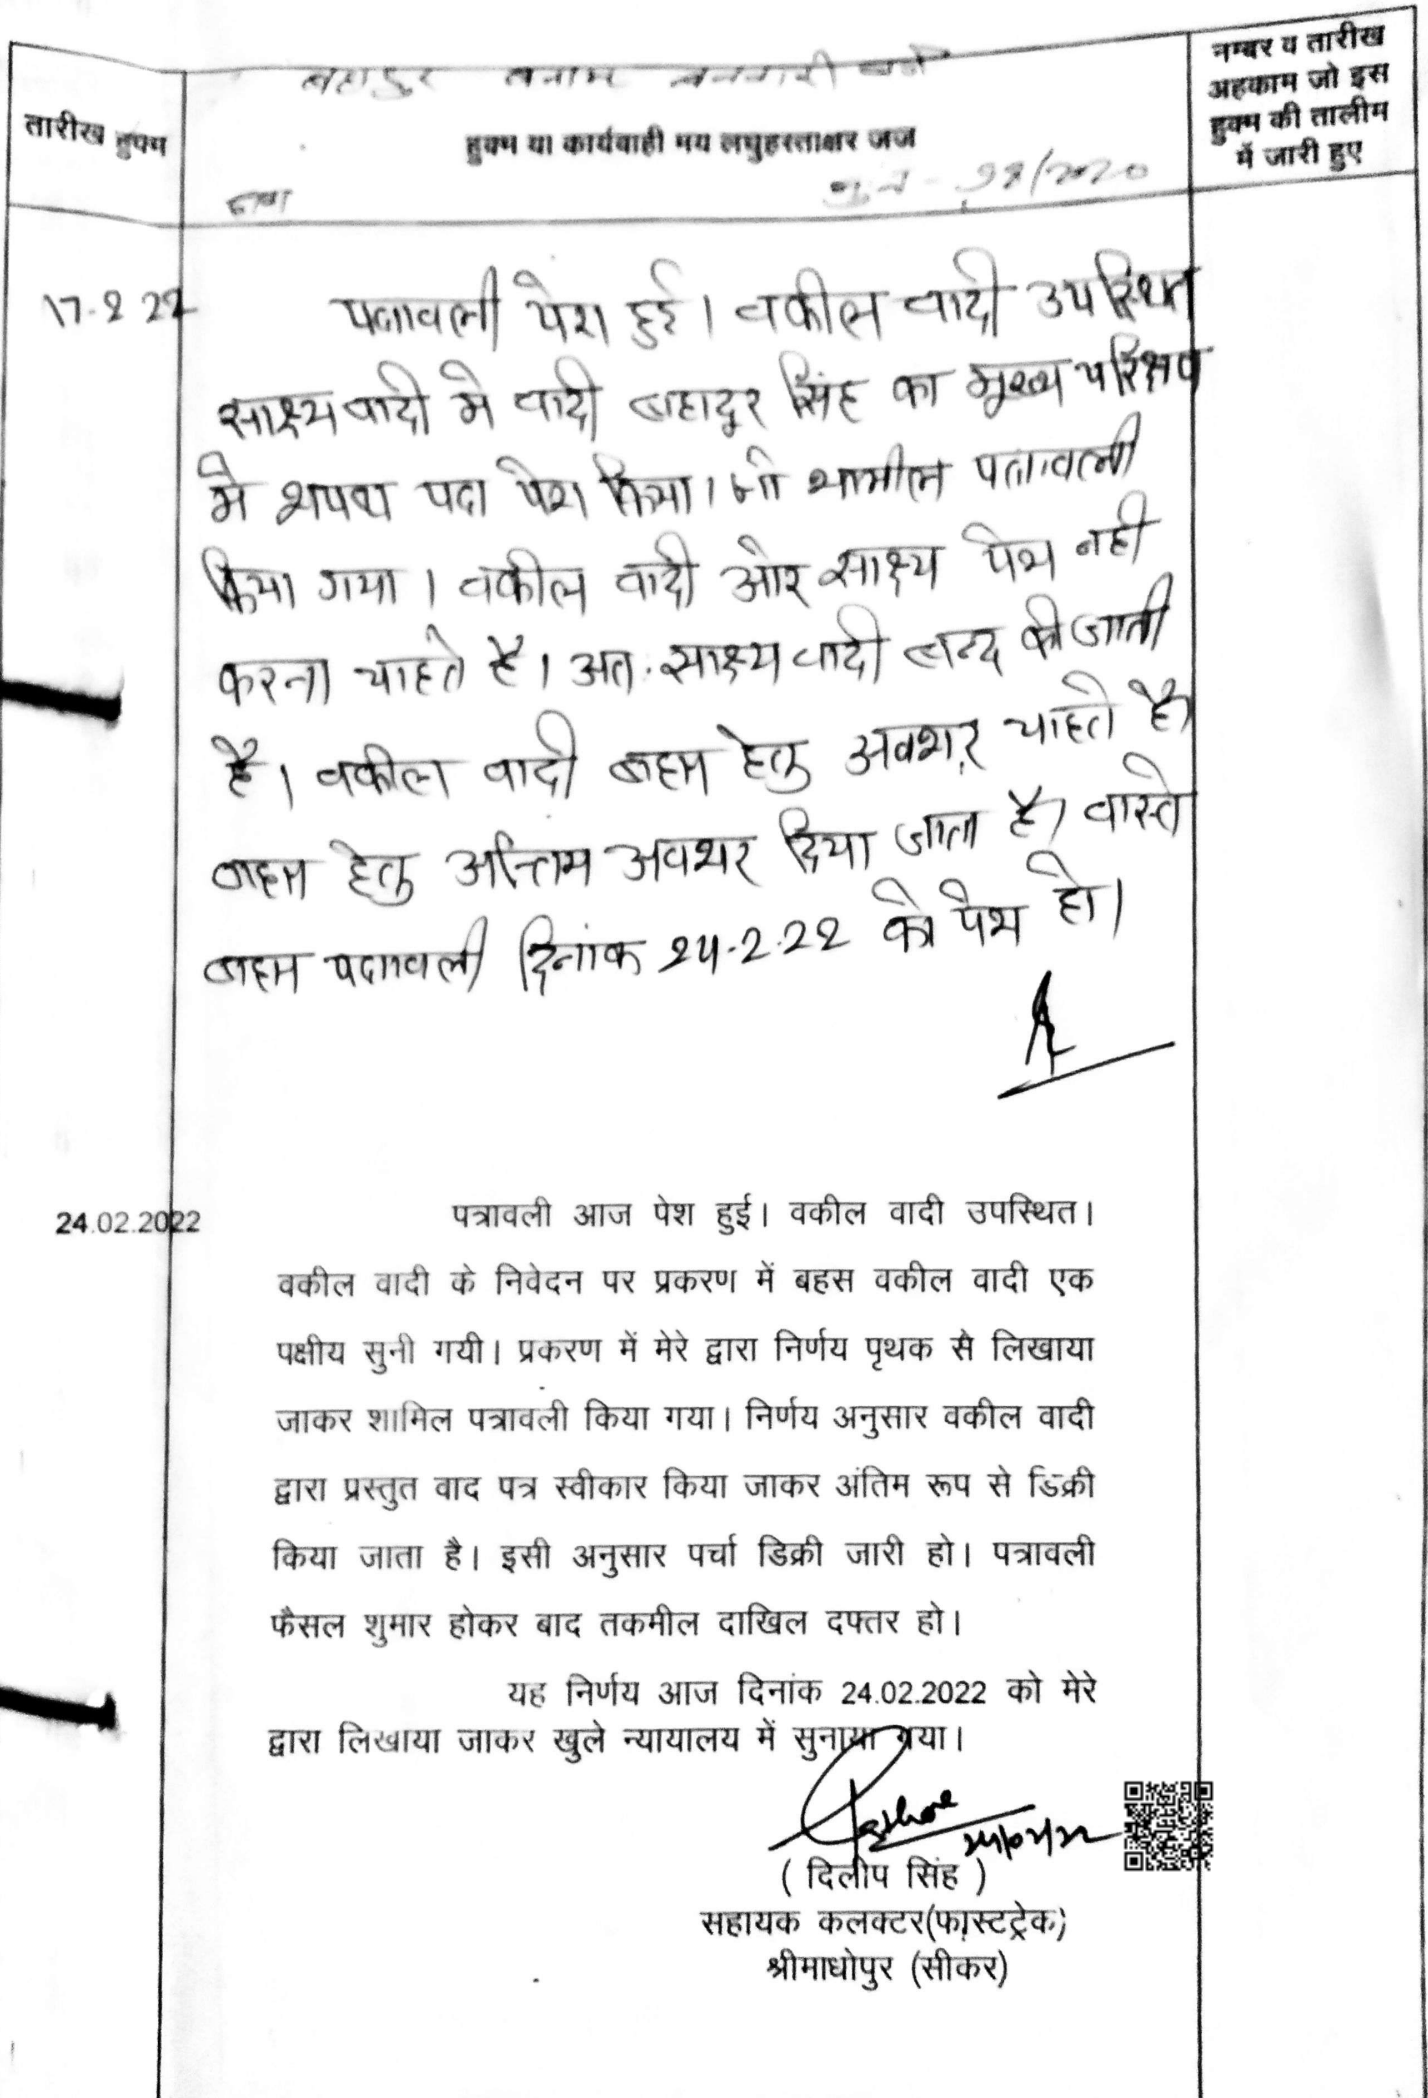 बहादुर बनाम
तारीख हुक्म
हुक्म या कार्यवाही मय लघुहस्ताक्षर जज
नम्बर व तारीख
अहकाम जो इस
हुक्म की तालीम
में जारी हुए
/2020
17-2 22
पत्रावली पेश हुई। वकील वादी उपस्थित
साक्ष्य वादी मे वादी बहादुर सिंह का मुख्य परिक्षण
मे शपथ पत्र पेश किया। जो शामील पत्रावली
किया गया। वकील वादी ओर साक्ष्य पेश नही
करना चाहते है। अत. साक्ष्य वादी बन्द की जाती
है। वकील वादी बहस हेतु अवशर चाहते है।
बहस हेतु अन्तिम अवशर दिया जाता है। वास्ते
बहस पत्रावली दिनांक 24-2-22 को पेश हो।
24.02.2022
पत्रावली आज पेश हुई। वकील वादी उपस्थित।
वकील वादी के निवेदन पर प्रकरण में बहस वकील वादी एक
पक्षीय सुनी गयी। प्रकरण में मेरे द्वारा निर्णय पृथक से लिखाया
जाकर शामिल पत्रावली किया गया। निर्णय अनुसार वकील वादी
द्वारा प्रस्तुत वाद पत्र स्वीकार किया जाकर अंतिम रूप से डिक्री
किया जाता है। इसी अनुसार पर्चा डिक्री जारी हो। पत्रावली
फैसल शुमार होकर बाद तकमील दाखिल दफ्तर हो।
यह निर्णय आज दिनांक 24.02.2022 को मेरे
द्वारा लिखाया जाकर खुले न्यायालय में सुनाया गया।
24/02/22
( दिलीप सिंह )
सहायक कलक्टर(फास्टट्रेक)
श्रीमाधोपुर (सीकर)